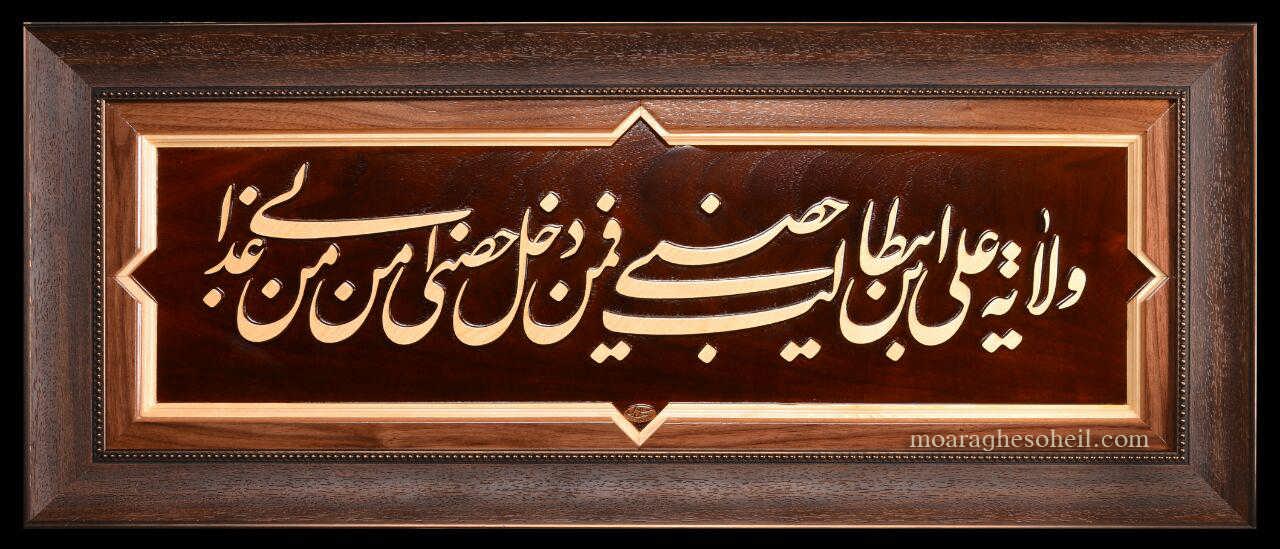 ولایة علی ابن ابیطالب حصنی فمن دخل حصنی امن من عذابی
moaraghesoheil.com